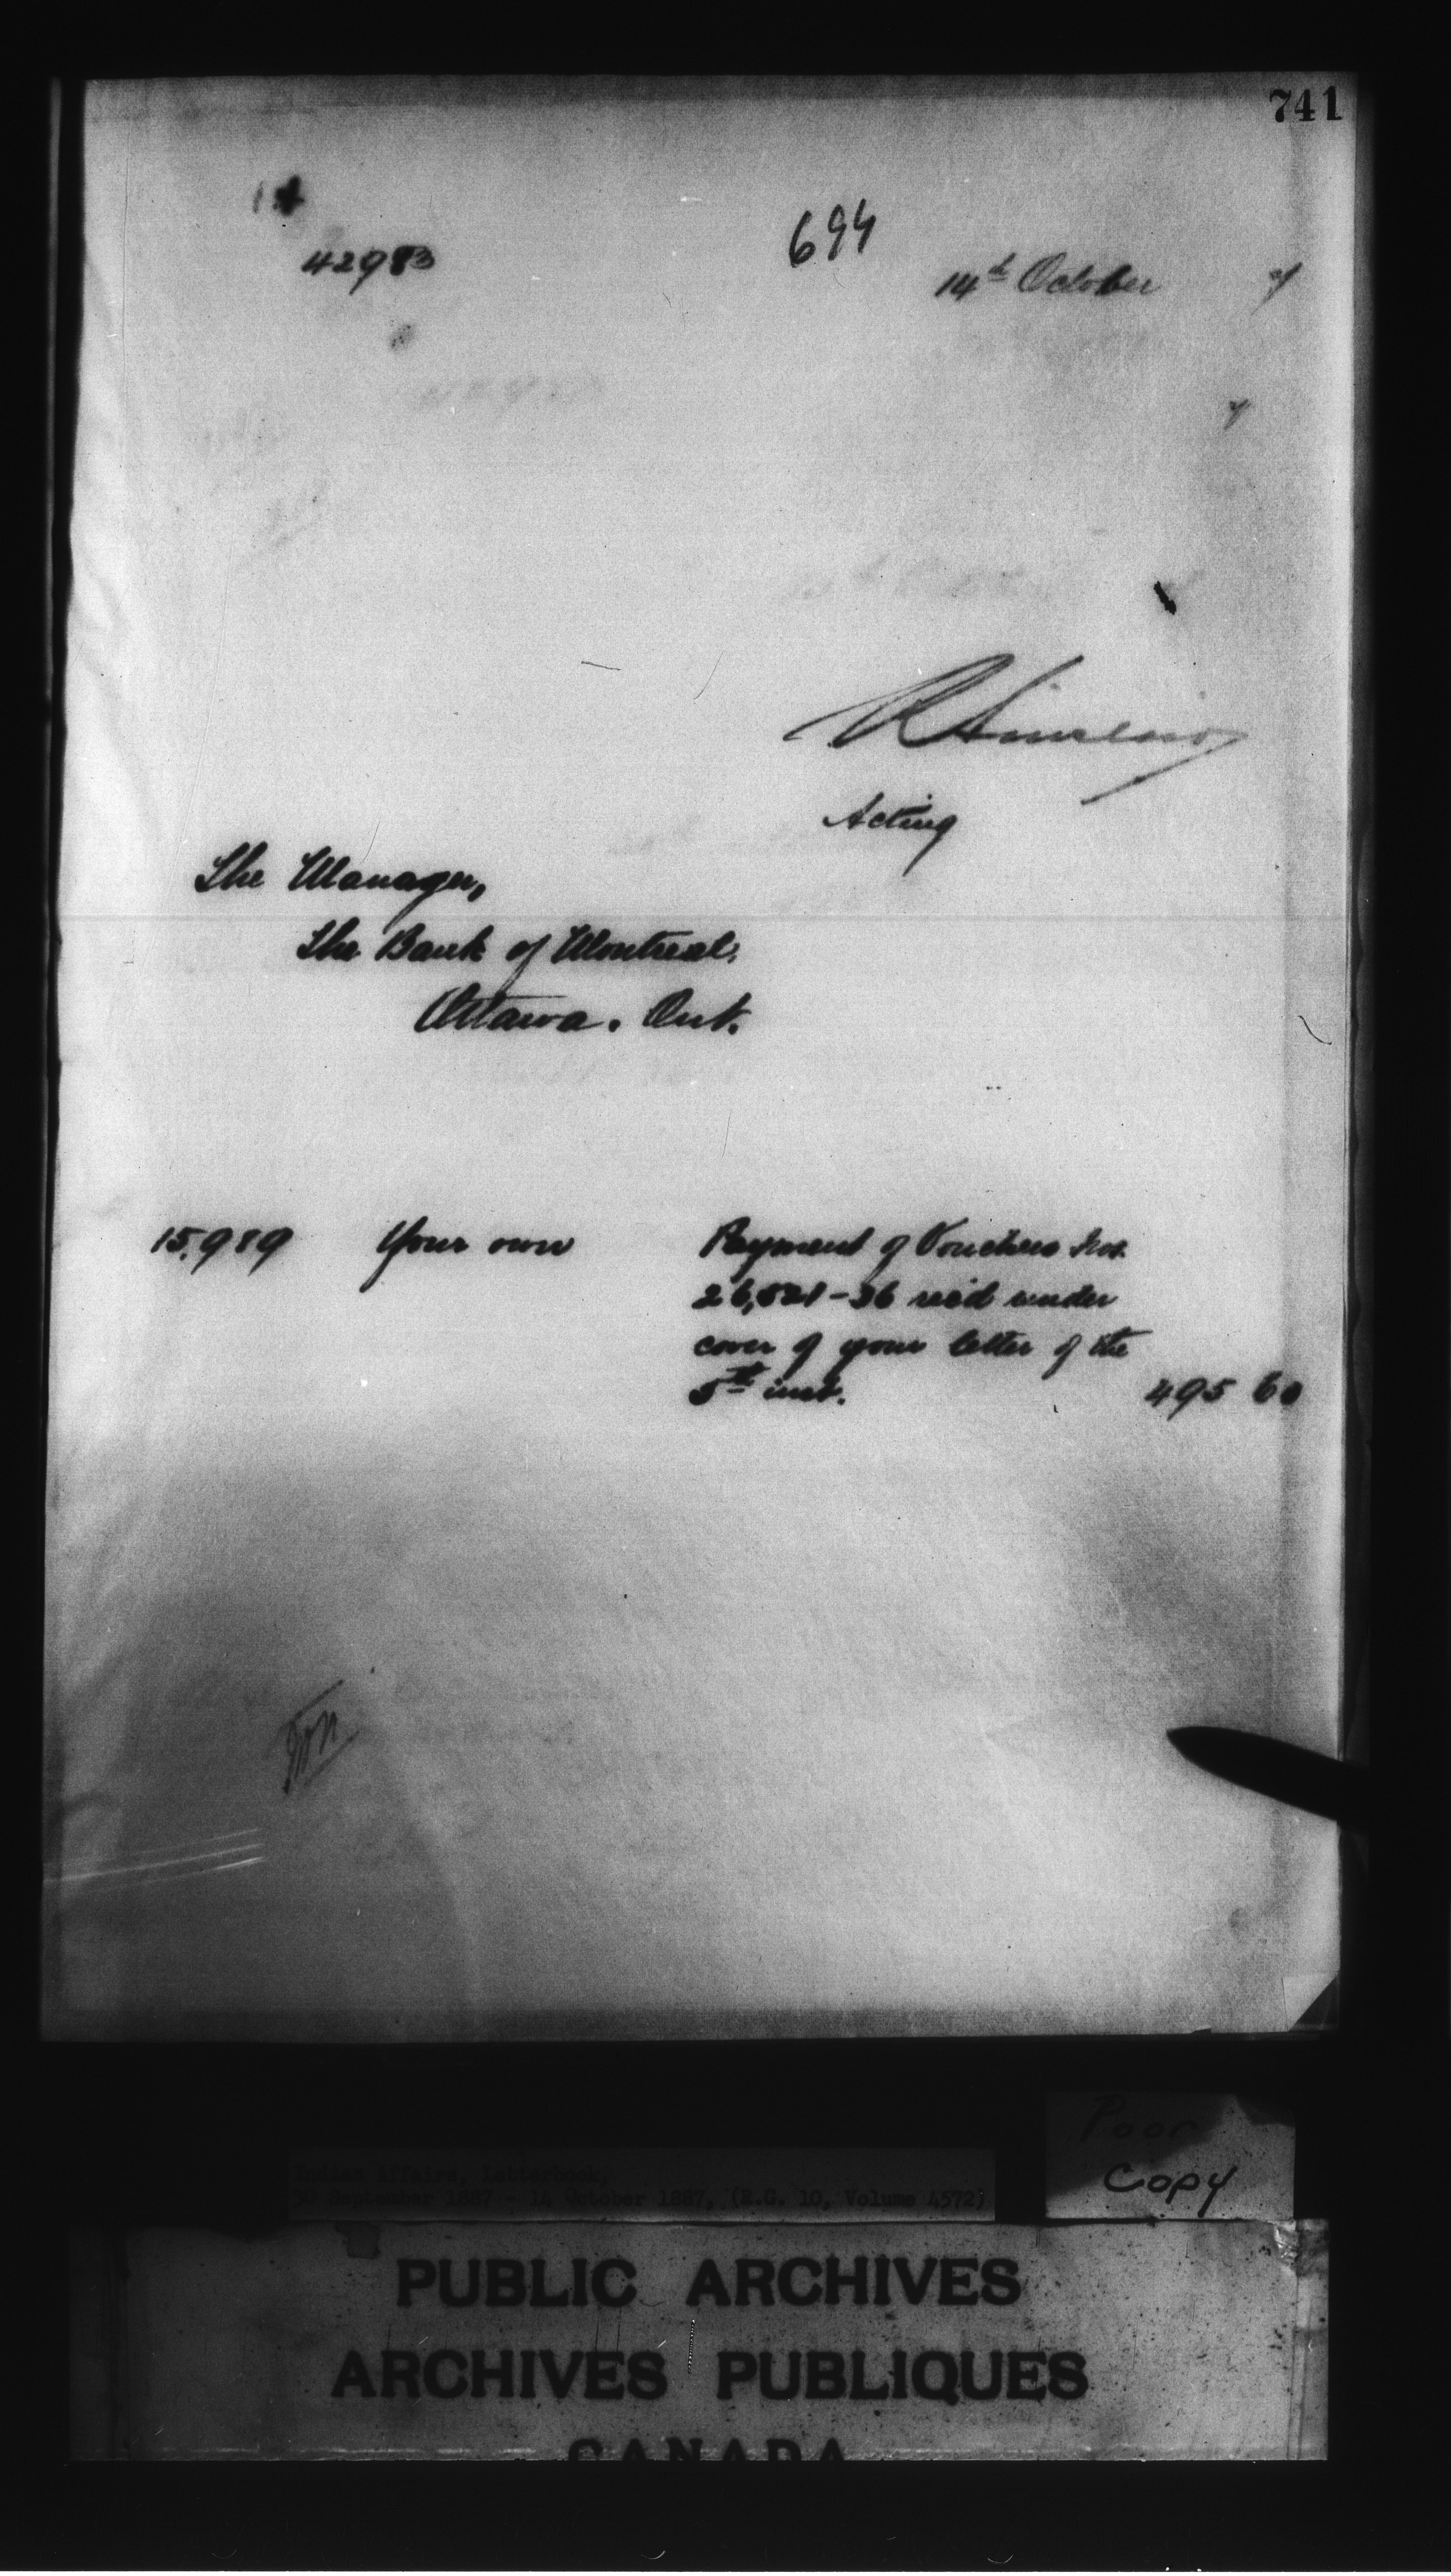 741
694
42983
14th October 7
7
R Sinclair
Acting
The Manager,
The Bank of Montreal,
Ottawa. Ont.
15,989 Your own Payment of Vouchers Nos.
26,521-36 rec'd under
cover of your letter of the
5th inst. 495 60
Poor
Copy
Indian Affairs, Letterbook,
30 September 1887 - 14 October 1887, (R.G. 10, Volume 4572)
PUBLIC ARCHIVES
ARCHIVES PUBLIQUES
CANADA